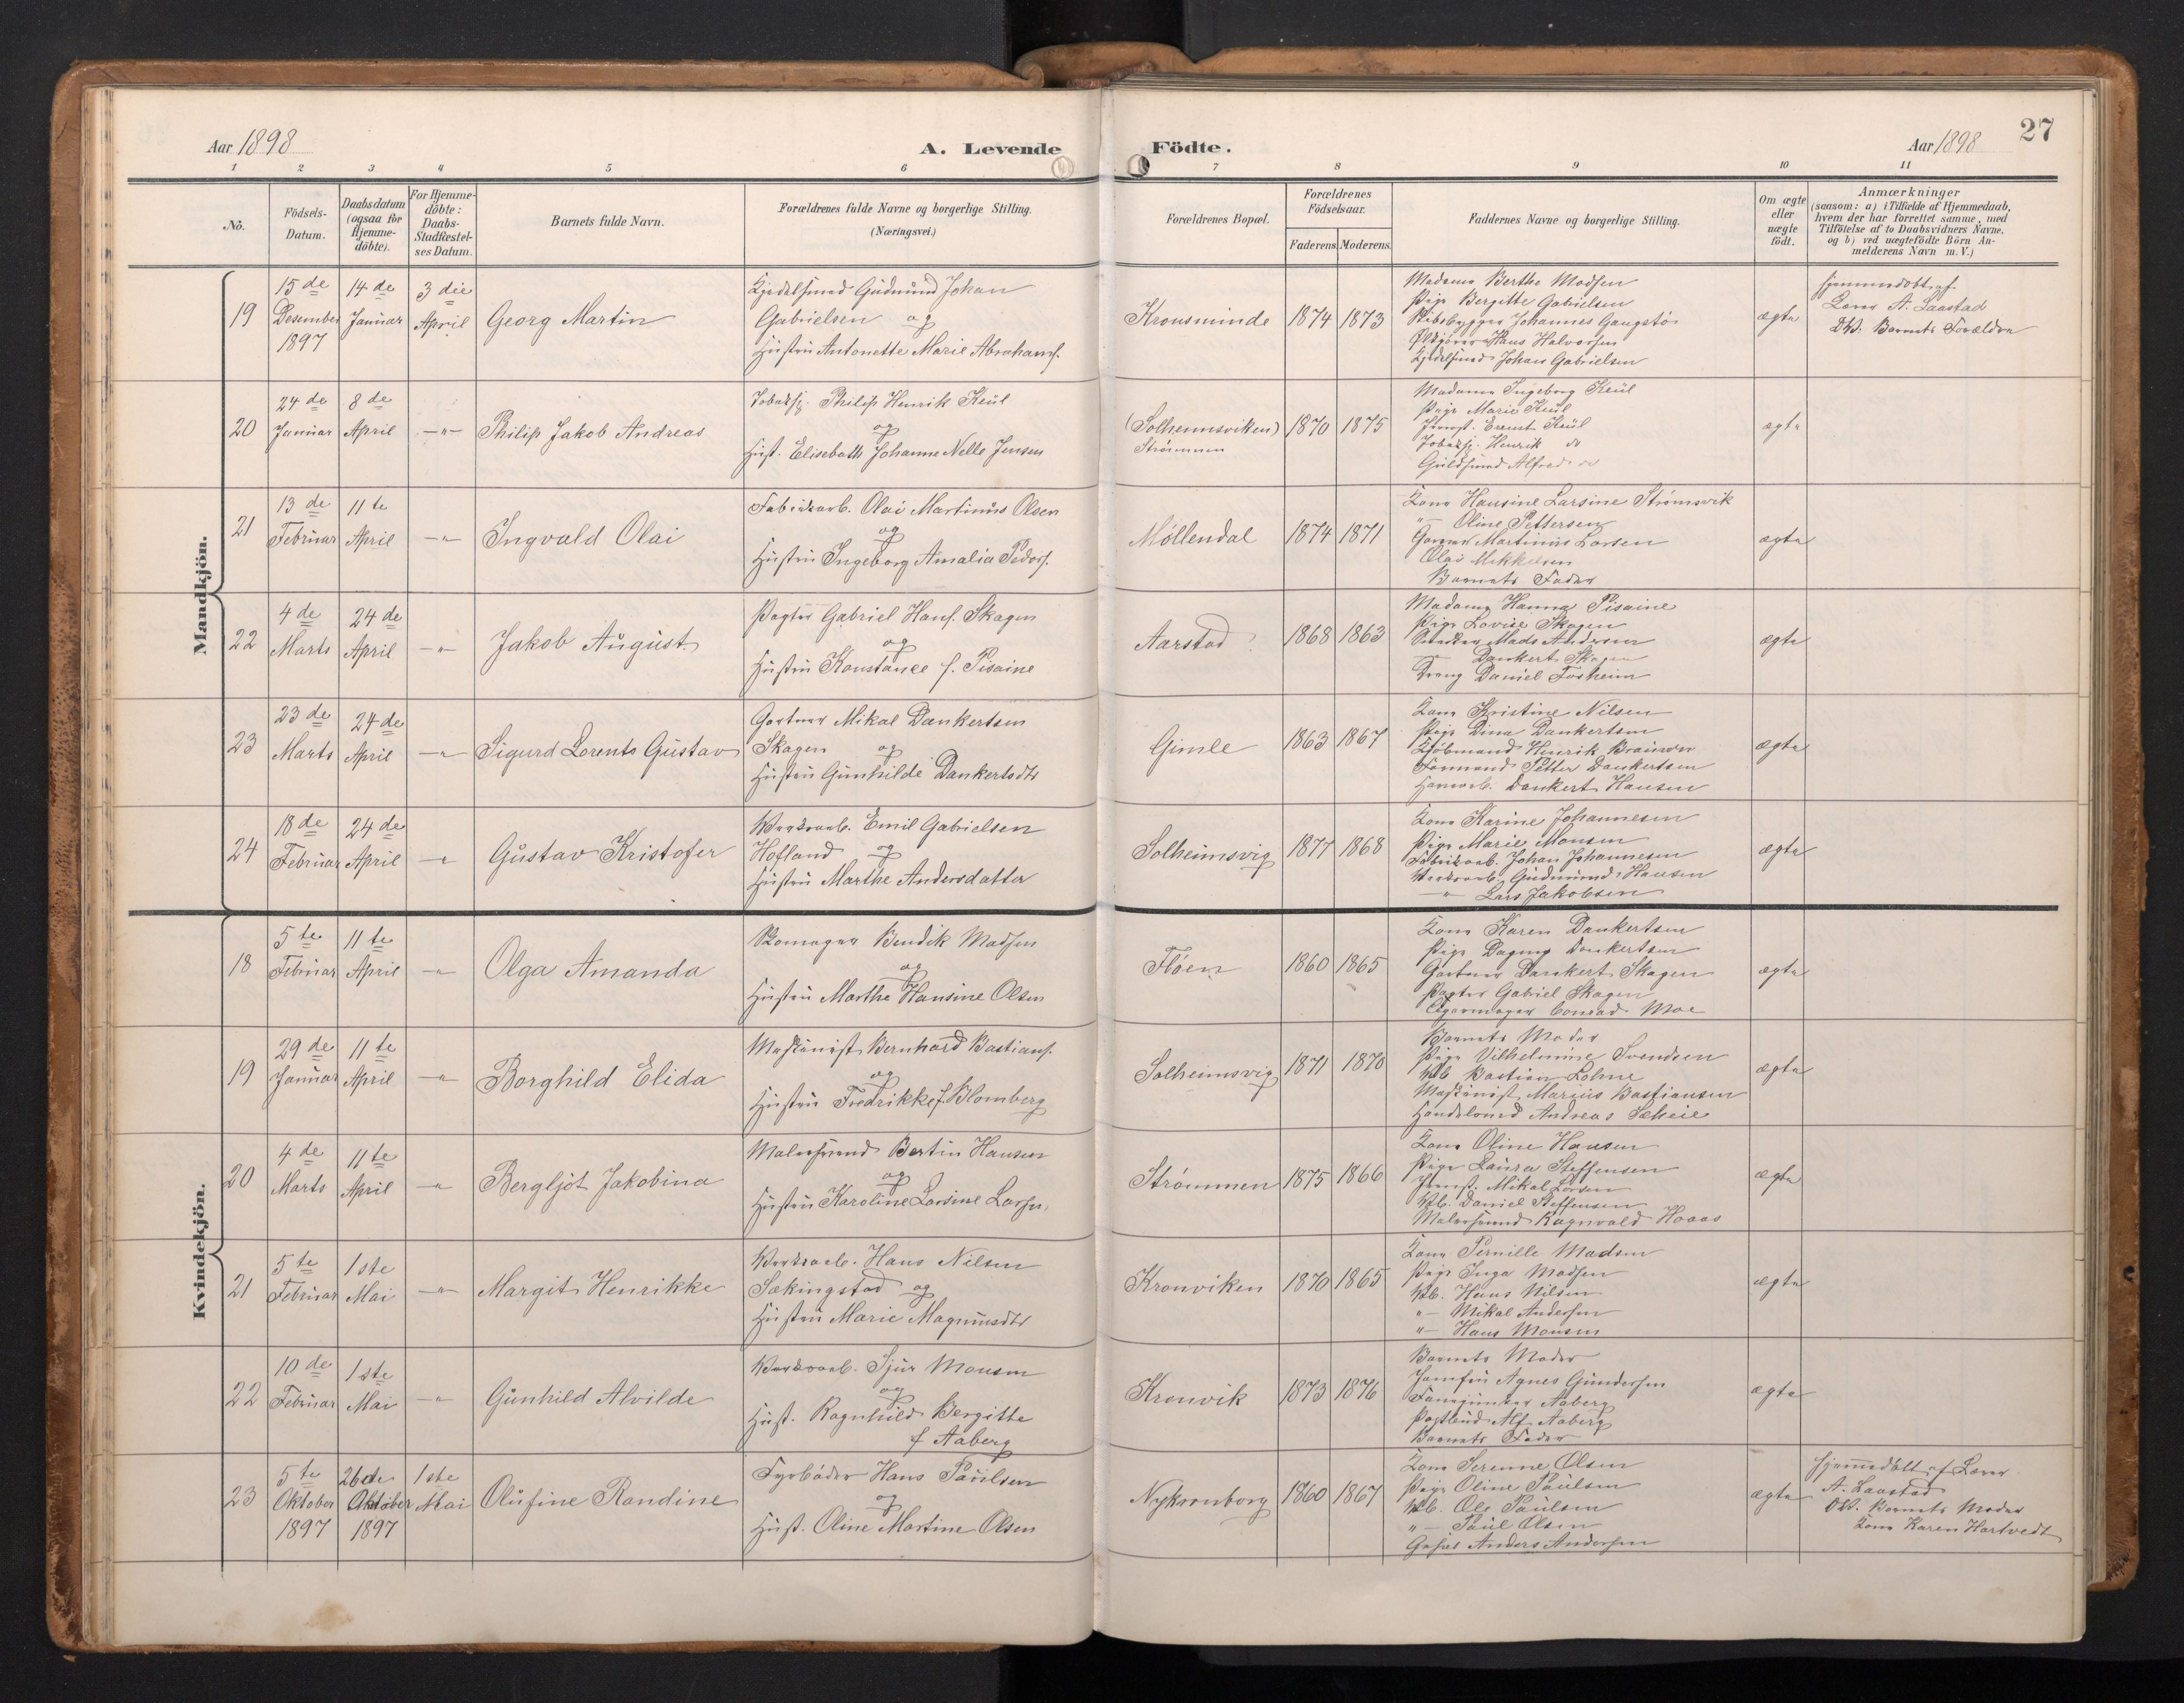 Aar 1898
A. Levende
Födte.
Aar 1898
27
1 2 3 4 5 6 7 8 9 10 11
No.
Födsels-
Datum.
Daabsdatum
(ogsaa for
Hjemme-
döbte).
For Hjemme-
döbte:
Daabs-
Stadfæstel-
ses Datum.
Barnets fulde Navn.
Forældrenes fulde Navne og borgerlige Stilling.
(Næringsvei.)
Forældrenes Bopæl.
Forældrenes
Födselsaar.
Faderens. Moderens.
Faddernes Navne og borgerlige Stilling.
Om ægte
eller
uægte
födt.
Anmærkninger
(saasom: a) i Tilfælde af Hjemmedaab,
hvem der har forrettet samme, med
Tilföielse af to Daabsvidners Navne,
og b) ved uægtefödte Börn An-
melderens Navn m. V.)
Mandkjön.
19
15 de
Desember
1897
14 de
Januar
3 die
April
Georg Martin
Kjedelsmed Gudmund Johan
Gabrielsen og
Hustru Antonette Marie Abrahams.
Kronsminde
1874 1873
Madame Berthe Madsen
Pige Bergitte Gabrielsen
Johannes Gangstø
Hans Halvorsen
Kjedelsmed Johan Gabrielsen
ægte
Hjemmedøbt af
Lærer A. Laastad
DV. Barnets Forældre
20
24 de
Januar
8 de
April
—"—
Philip Jakob Andreas
Philip Henrik Keül
og
Hust. Elisebath Johanne Nelle Jensen
(Solheimsviken)
Strømmen
1870 1875
Madame Ingeborg Keül
Pige Marie Keül
Ernst Keül
Henrik do
Guldsmed Alfred do
ægte
21
13 de
Februar
11 te
April
—"—
Ingvald Olai
Fabrikarb. Olai Martinus Olsen
og
Hustru Ingeborg Amalia Peders.
Møllendal
1874 1871
Kone Hansine Larsine Strømsvik
"— Oline Pettersen
Martinus Larsen
Olai Mikkelsen
Barnets Fader
ægte
22
4 de
Marts
24 de
April
—"—
Jakob August
Pagter Gabriel Hans. Skagen
og
Hustru Konstance f. Pisaine
Aarstad ?
1868 1863
Madame Hanna Pisaine
Pige Lovise Skagen
Mads Andersen
Dankert Skagen
Dreng Daniel Fosheim
ægte
23
23 de
Marts
24 de
April
—"—
Sigurd Lorents Gustav
Gartner Mikal Dankertsen
Skagen og
Hustru Gunhilde Dankertsdtr
Gimle
1863 1867
Kone Kristine Nilsen
Pige Dina Dankertsen
Kjøbmand Henrik
Formand Petter Dankertsen
Dankert Hansen
ægte
24
18 de
Februar
24 de
April
—"—
Gustav Kristofer
Værksarb. Emil Gabrielsen
Hofland og
Hustru Marthe Andersdatter
Solheimsvig
1877 1868
Kone Karine Johannesen
Pige Marie Monsen
Fabrikarb. Johan Johannesen
Værksarb. Gudmund Hansen
—"— Lars Jakobsen
ægte
Kvindekjön.
18
5 te
Februar
11 te
April
—"—
Olga Amanda
Skomager Bendik Madsen
og
Hustru Marthe Hansine Olsen
Fløen
1860 1865
Kone Karen Dankertsen
Pige Dagny Dankertsen
Gartner Dankert Skagen
Pagter Gabriel Skagen
Conrad Moe
ægte
19
29 de
Januar
11 te
April
—"—
Borghild Elida
Maskinist Bernhard Bastians.
og
Hustru Fredrikke f. Blomberg
Solheimsvig
1871 1870
Barnets Moder
Pige Vilhelmine Svendsen
Vb. Bastian Lohne
Maskinist Marius Bastiansen
Handelsmd Andreas Sæheie
ægte
20
4 de
Marts
11 te
April
—"—
Bergljot Jakobina
Malersvend Bertin Hansen
og
Hustru Karoline Larsine Larsen.
Strømmen
1875 1866
Kone Oline Hansen
Pige Laura Steffensen
Mikal Larsen
Vb. Daniel Steffensen
Malersvend Ragnvald Haaas
ægte
21
5 te
Februar
1 ste
Mai
—"—
Margit Henrikke
Værksarb. Hans Nilsen
Sækingstad og
Hustru Marie Magnusdtr
Kronviken
1870 1865
Kone Pernille Madsen
Pige Inga Madsen
Vb. Hans Nilsen
"— Mikal Andersen
"— Hans Monsen
ægte
22
10 de
Februar
1 ste
Mai
—"—
Gunhild Alvilde
Værksarb. Sjur Monsen
og
Hust. Ragnhild Bergitte
f Aaberg
Kronvik
1873 1876
Barnets Moder
Jomfru Agnes Gundersen
Fanejunker Aaberg
Postbud Alf Aaberg
Barnets Fader
ægte
23
5 te
Oktober
1897
26 de
Oktober
1897
1 ste
Mai
Olufine Randine
Fyrbøder Hans Paulsen
og
Hust. Oline Martine Olsen
Nykronborg
1860 1867
Kone Serenne Olsen
Pige Oline Paulsen
Vb. Ole Paulsen
"— Paul Olsen
Anders Andersen
ægte
Hjemmedøbt af Lærer
A. Laastad
DV. Barnets Moder
Kone Karen Hartvedt